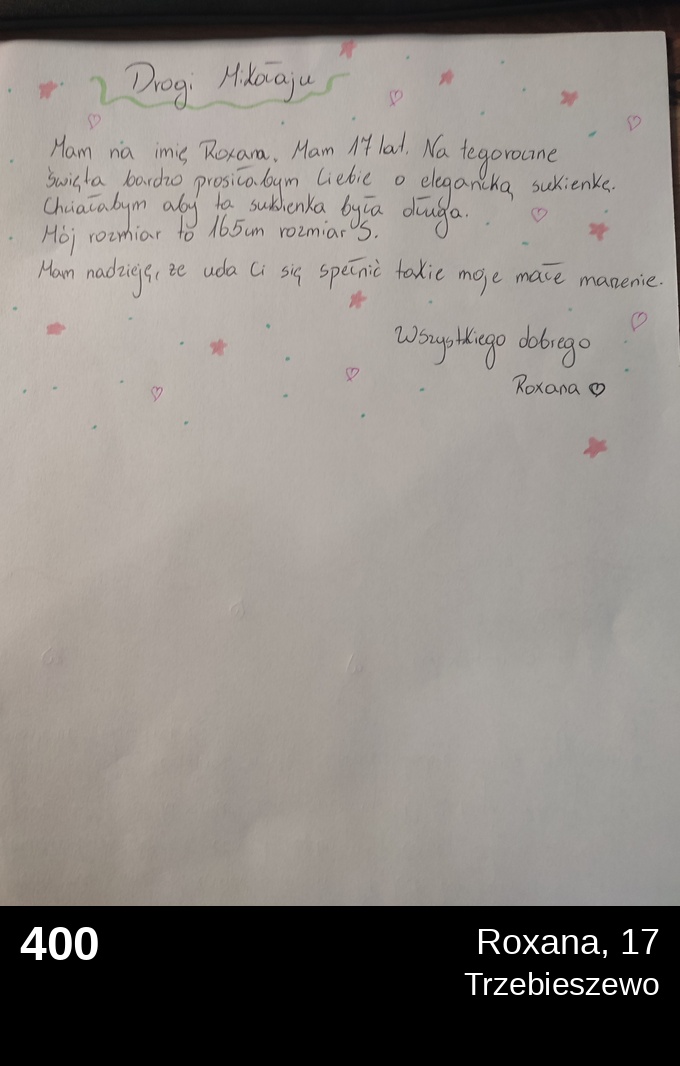 Drogi Mikołaju
Mam na imię Roxana. Mam 17 lat. Na tegoroczne
święta bardzo prosiłabym Ciebie o elegancką sukienkę.
Chciałabym aby ta sukienka była długa.
Mój rozmiar to 165cm rozmiar S.
Mam nadzieję, że uda Ci się spełnić takie moje małe marzenie.
Wszystkiego dobrego
Roxana ♡
400
Roxana, 17
Trzebieszewo